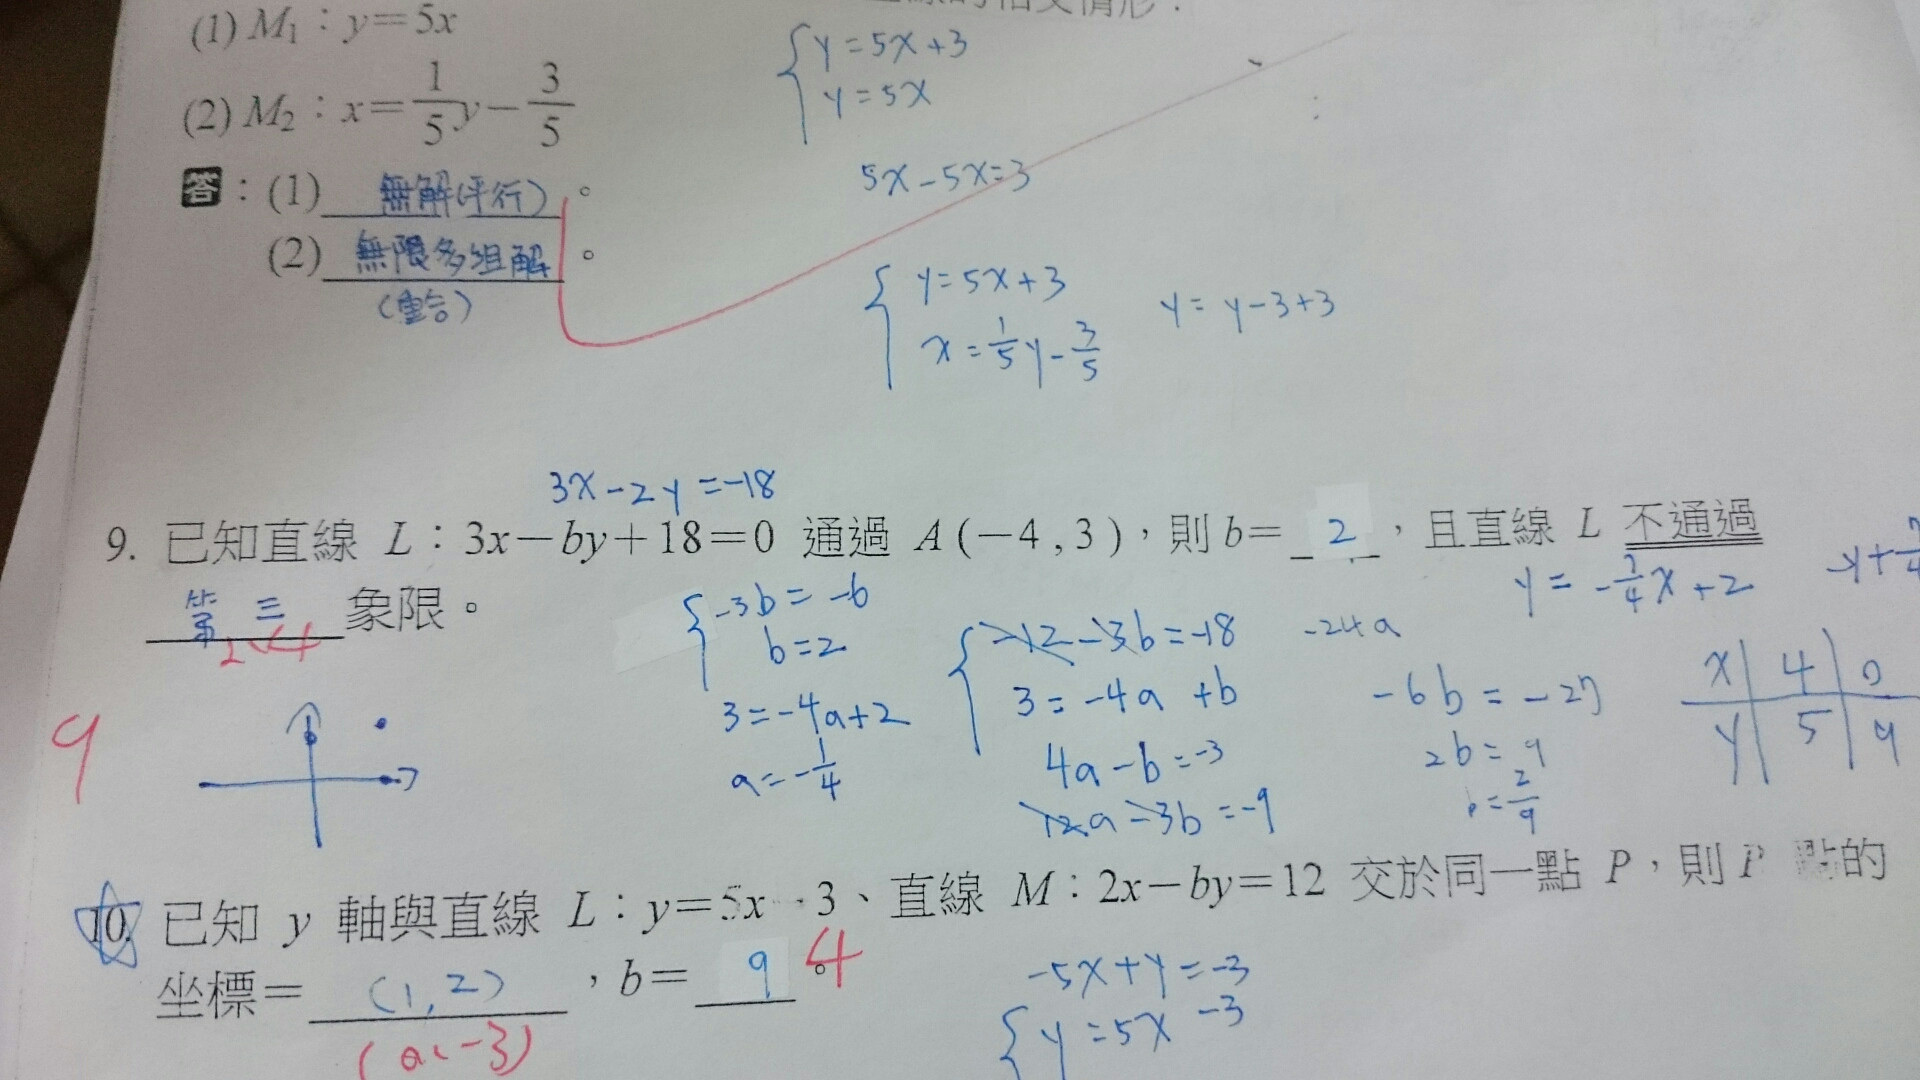 (1) M₁：y＝5x
{ y = 5x + 3
y = 5x
(2) M₂：x＝1/5y－3/5
5x - 5x = 3
答：(1) 無解(平行)。
(2) 無限多組解。
(重合)
{ y = 5x + 3
x = 1/5y - 3/5
y = y - 3 + 3
3x - 2y = -18
9. 已知直線 L：3x－by＋18＝0 通過 A(－4 , 3)，則 b＝2，且直線 L 不通過
第三象限。
4
9
{ -3b = -6
b = 2
3 = -4a + 2
a = -1/4
{ -12 - 3b = -18
3 = -4a + b
4a - b = -3
12a - 3b = -9
-24a
-6b = -27
2b = 9
b = 2/9
y = -1/4x + 2
x 4 0
y 5 9
10. 已知 y 軸與直線 L：y＝5x－3、直線 M：2x－by＝12 交於同一點 P，則 P 點的
坐標＝(1, 2)，b＝9。
4
-3)
-5x + y = -3
{ y = 5x - 3